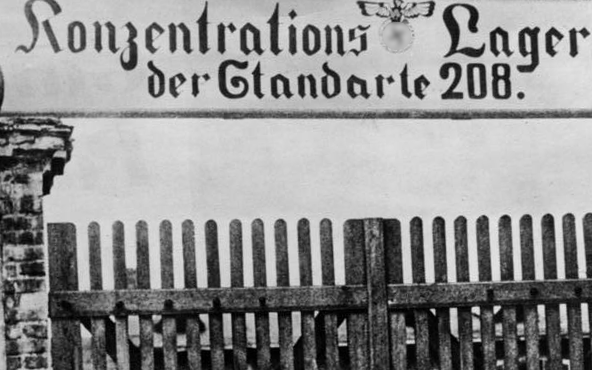 Konzentrations Lager
der Standarte 208.